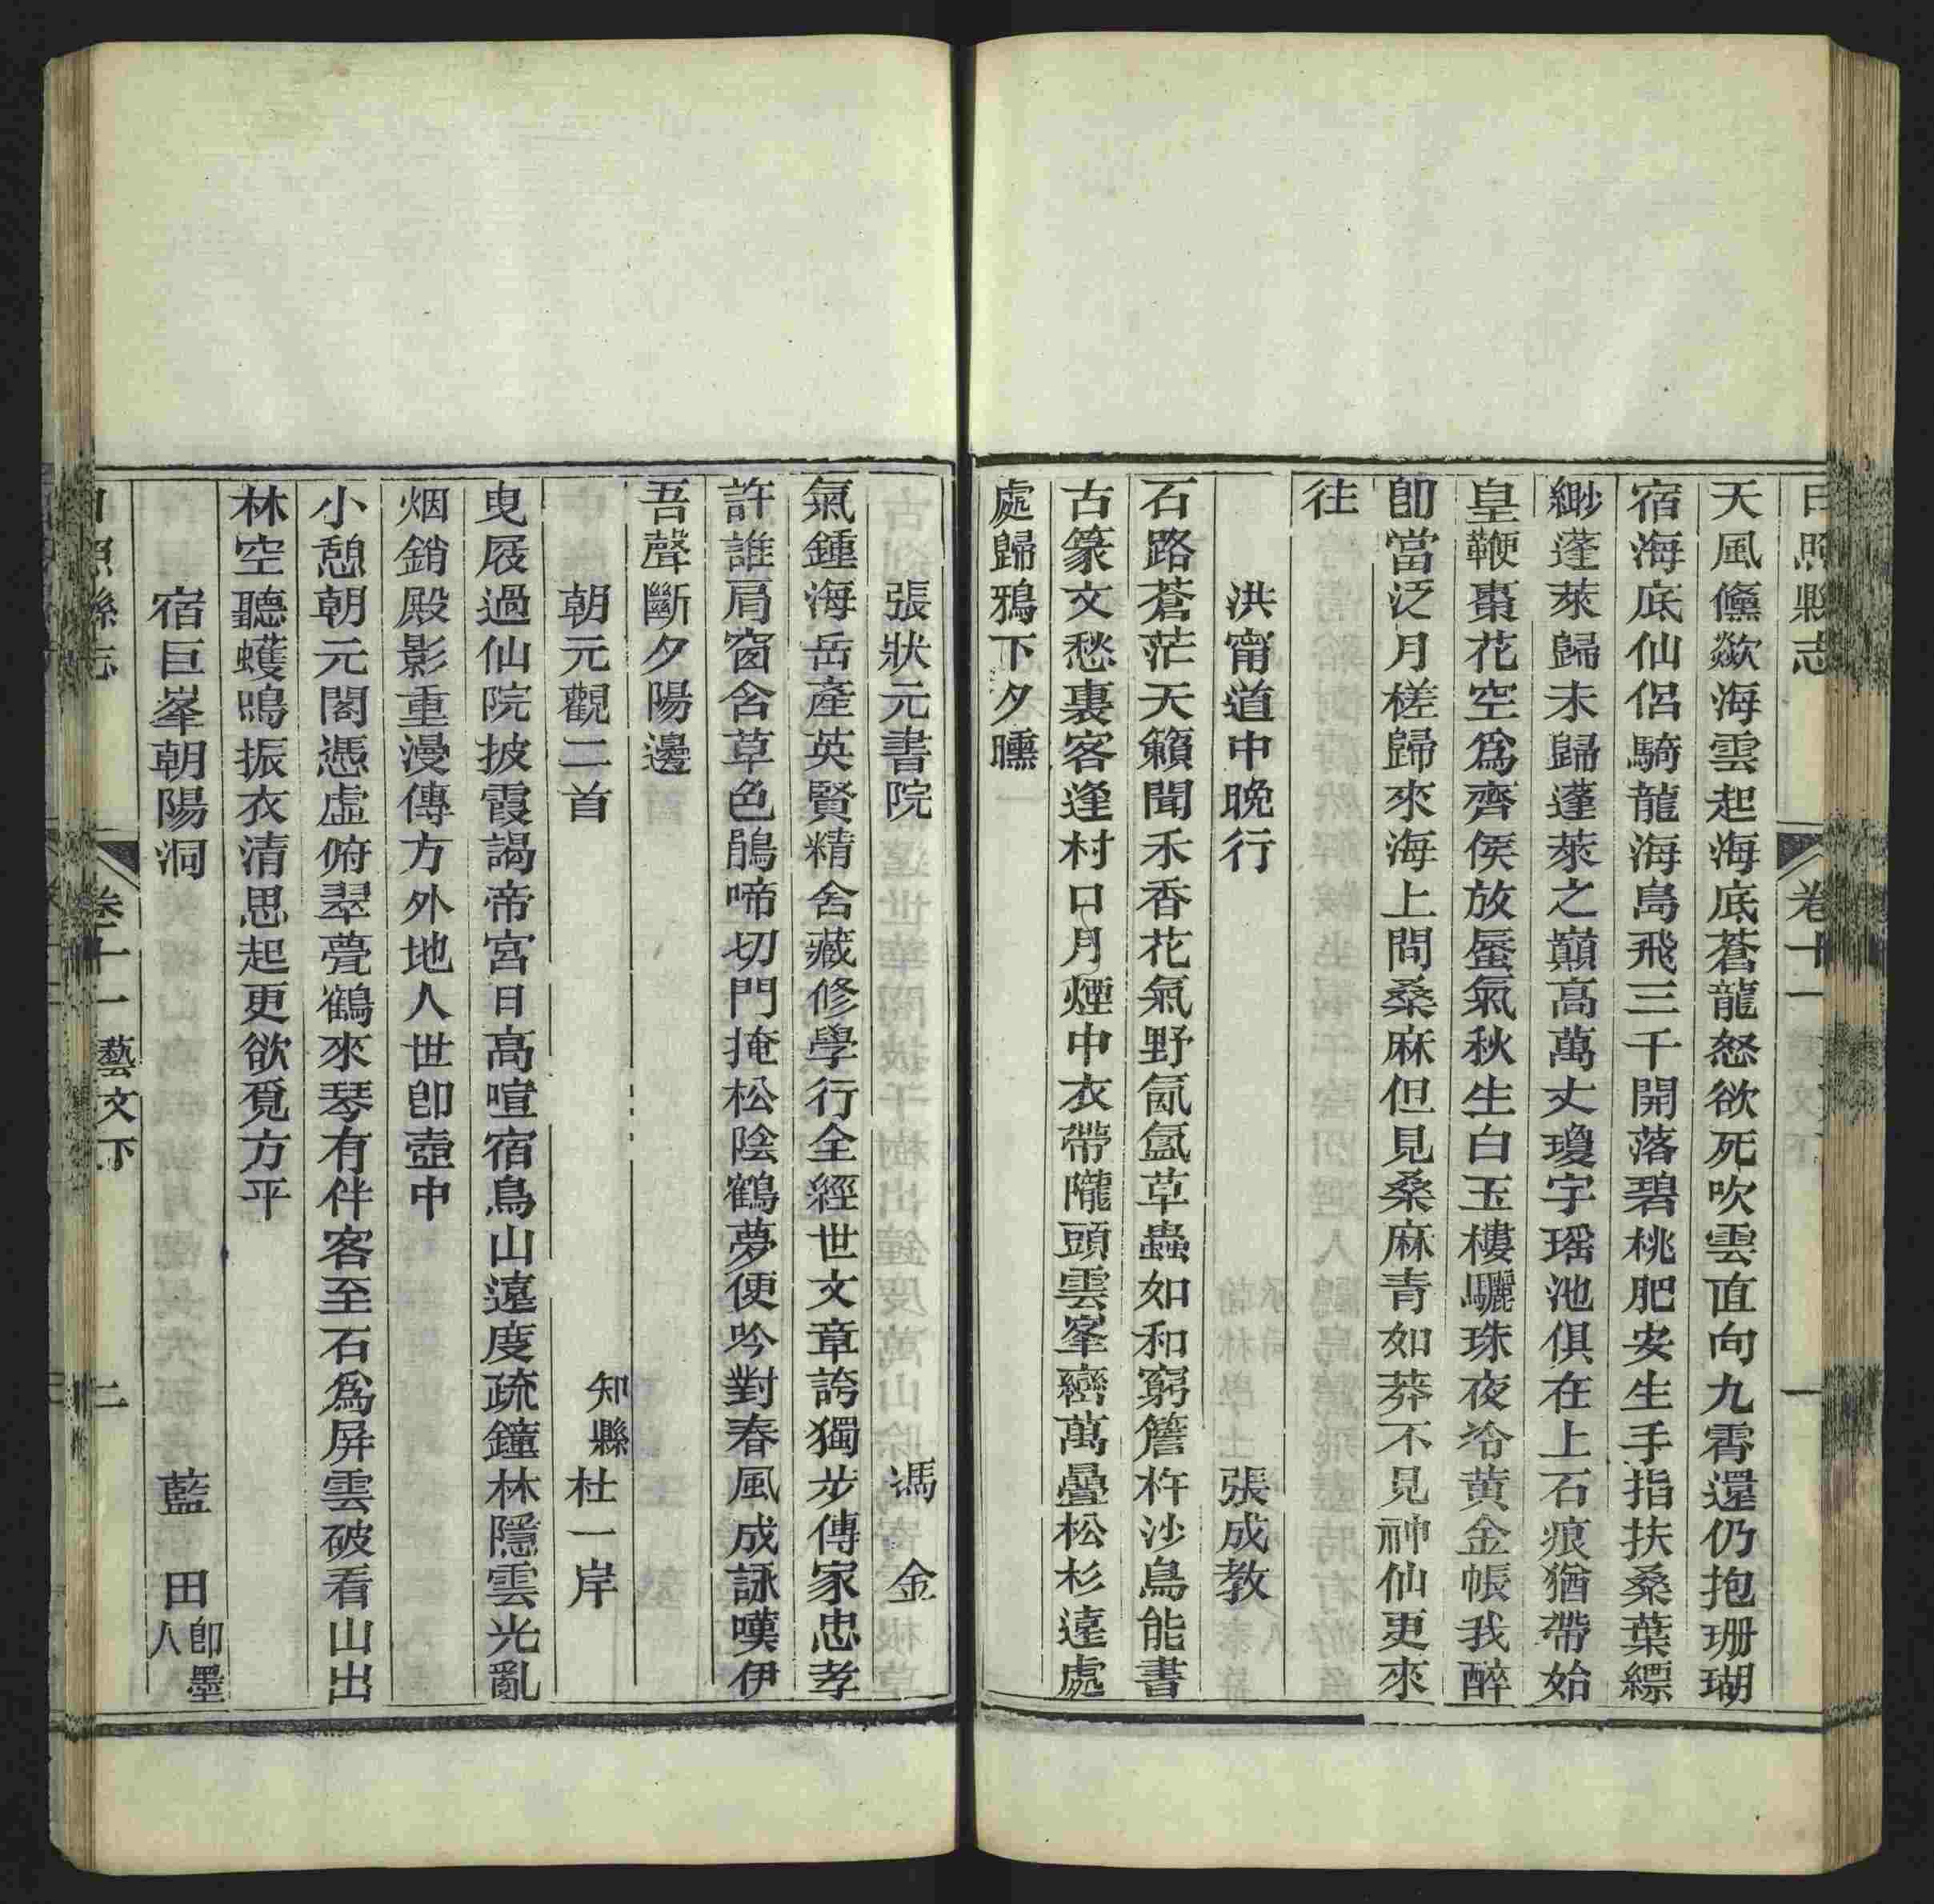 日照縣志
卷十一
一
天風儵歘海雲起海底蒼龍怒欲死吹雲直向九霄還仍抱珊瑚
宿海底仙侶騎龍海島飛三千開落碧桃肥安生手指扶桑葉縹
緲蓬萊歸未歸蓬萊之巔高萬丈瓊宇瑤池俱在上石痕猶帶始
皇鞭棗花空爲齊侯放蜃氣秋生白玉樓驪珠夜冷黃金帳我醉
卽當泛月槎歸來海上問桑麻但見桑麻青如莽不見神仙更來
往
洪甯道中晚行 張成教
石路蒼茫天籟聞禾香花氣野氤氳草蟲如和窮簷杵沙鳥能書
古篆文愁裏客逢村口月煙中衣帶隴頭雲峯巒萬疊松杉遠處
處歸鴉下夕曛
張狀元書院 馮金
氣鍾海岳產英賢精舍藏修學行全經世文章誇獨步傳家忠孝
許誰肩窗含草色鵑啼切門掩松陰鶴夢便吟對春風成詠嘆伊
吾聲斷夕陽邊
朝元觀二首 知縣杜一岸
曳屐過仙院披霞謁帝宮日高喧宿鳥山遠度疏鐘林隱雲光亂
烟銷殿影重漫傳方外地人世卽壺中
小憩朝元閣憑虛俯翠甍鶴來琴有伴客至石爲屏雲破看山出
林空聽蠖鳴振衣清思起更欲覓方平
宿巨峯朝陽洞 藍田卽墨人
日照縣志
卷十一藝文下
二